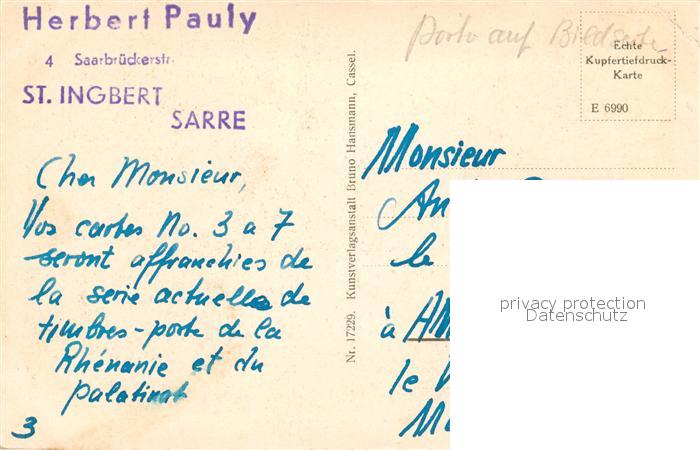 Herbert Pauly
4 Saarbrückerstr.
ST. INGBERT
SARRE
Cher Monsieur,
Vos cartes No. 3 a 7
seront affranchies de
la serie actuelle de
timbres-poste de la
Rhénanie et du
palatinat
3
Nr. 17229. Kunstverlagsanstalt Bruno Hansmann, Cassel.
Porto auf Bildseite
Echte
Kupfertiefdruck-
Karte
E 6990
Monsieur
An
le
à
le
privacy protection
Datenschutz